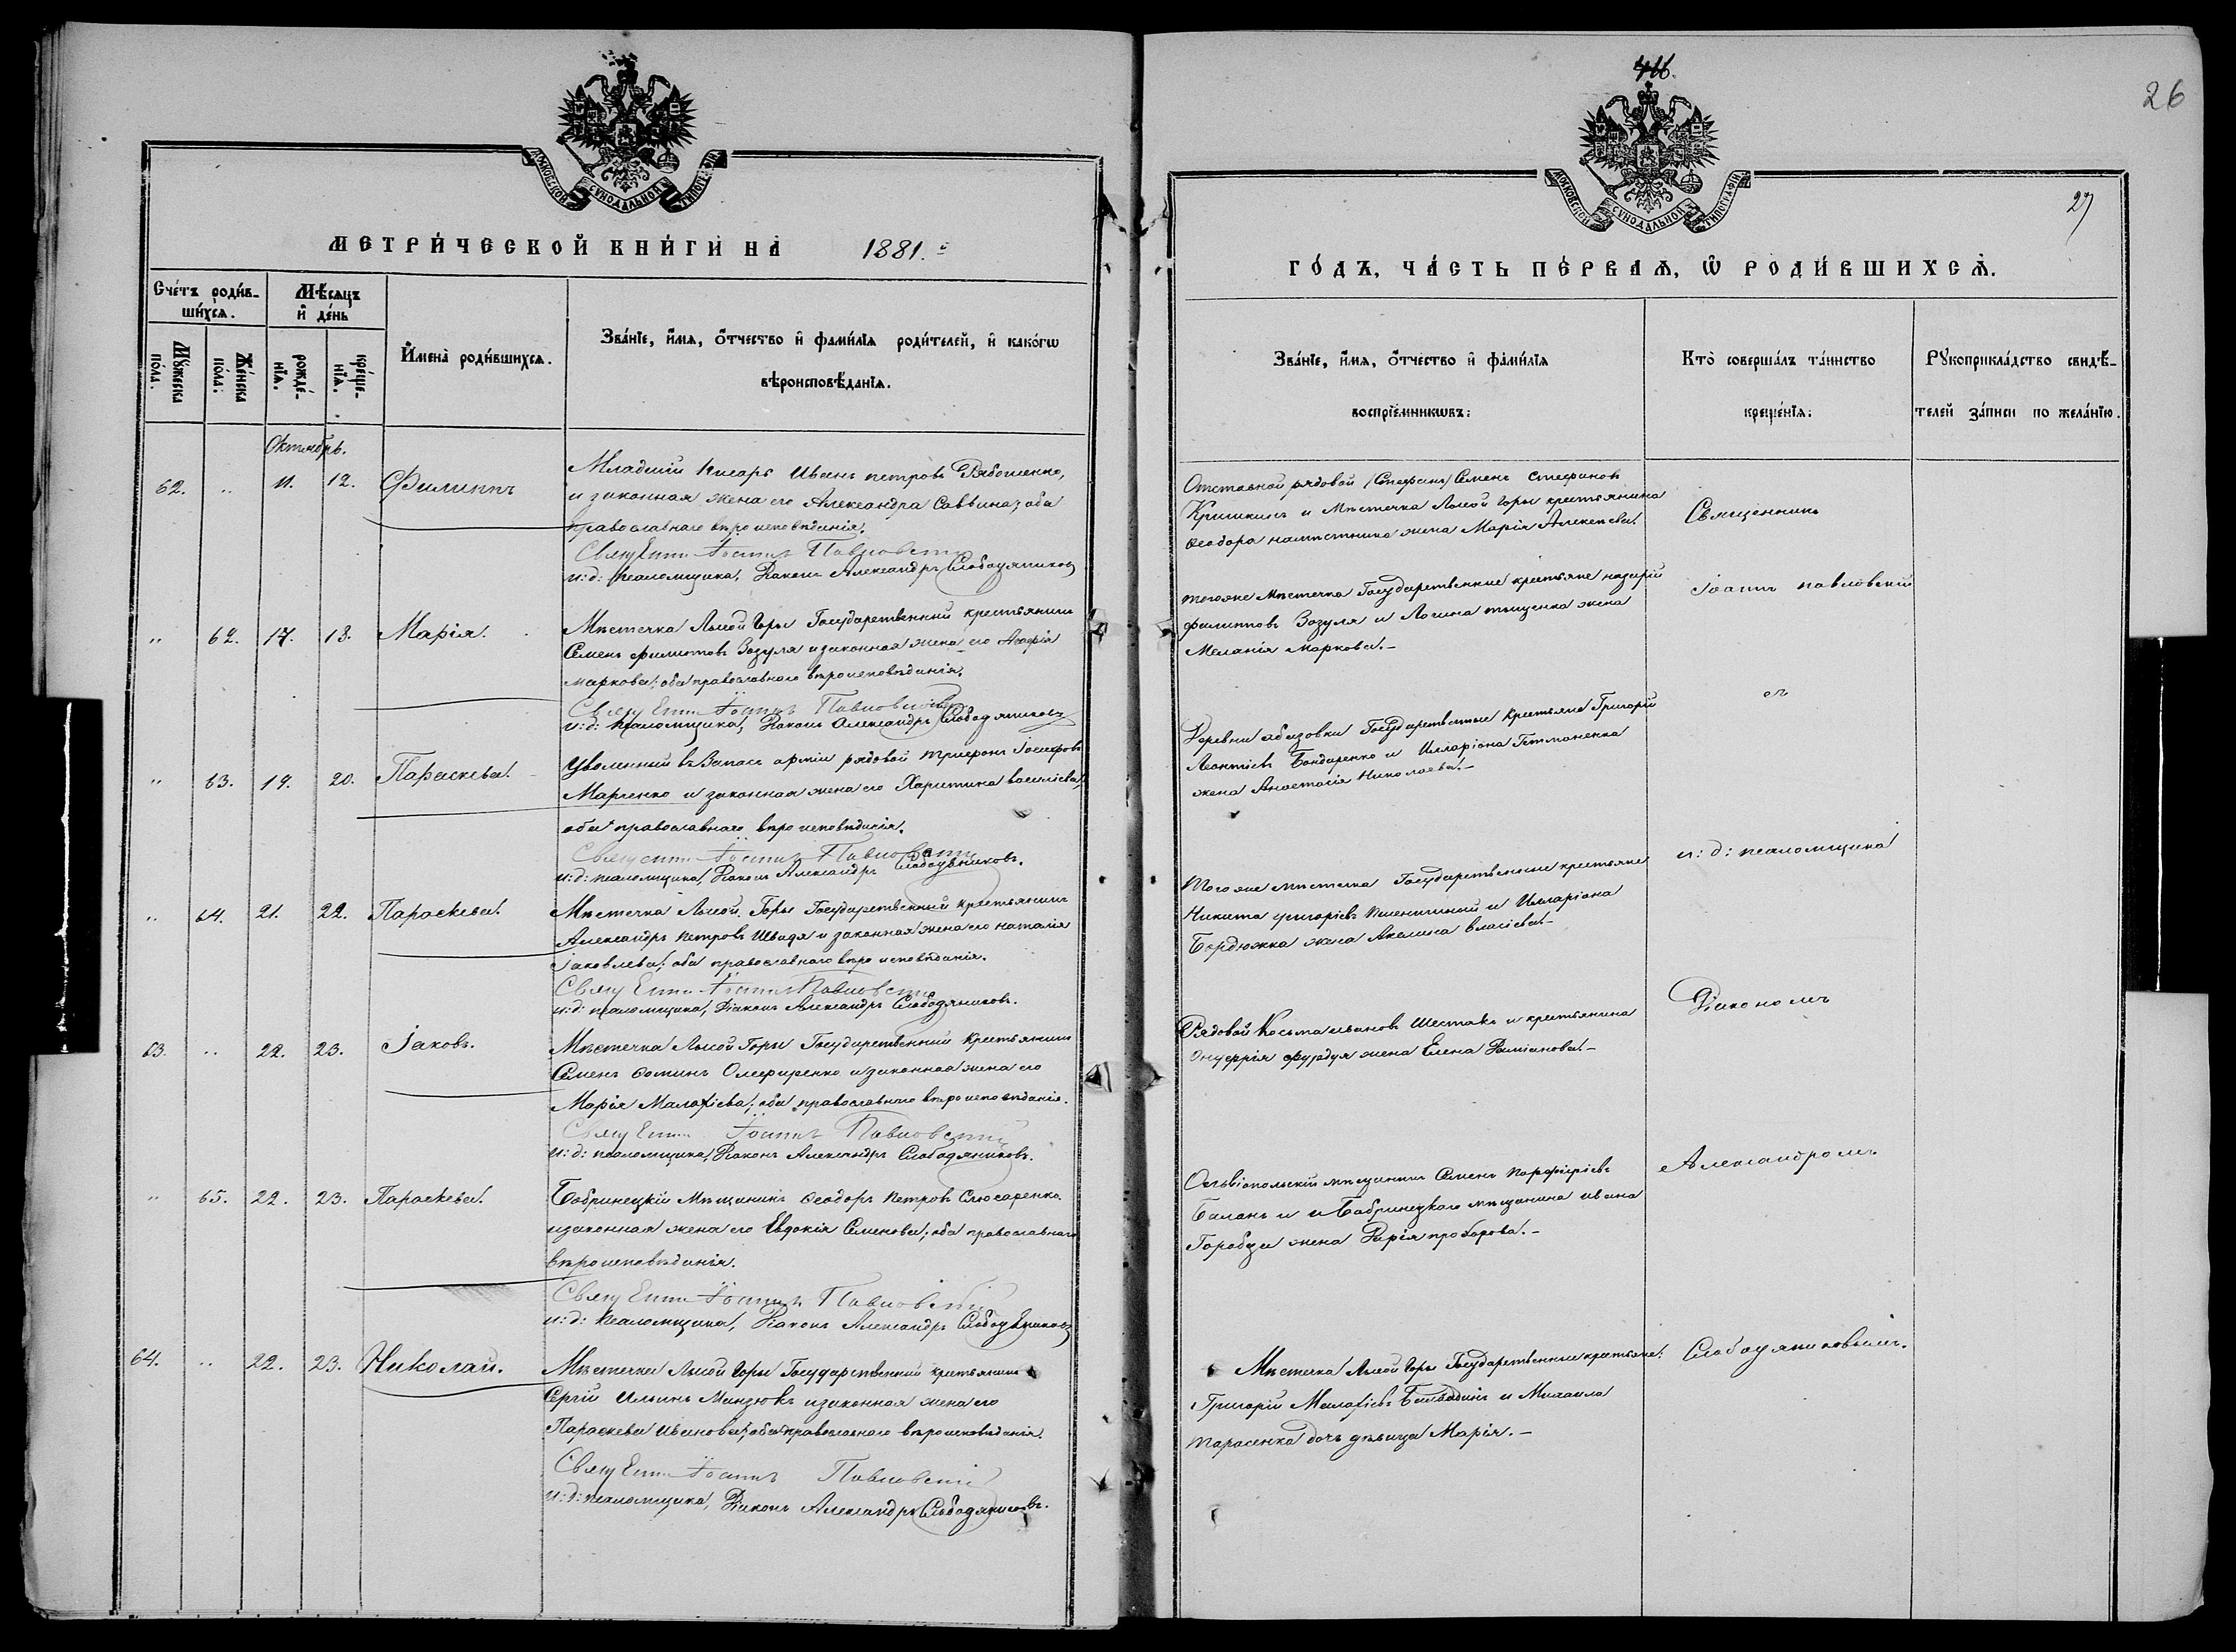 МОСКОВСКОЙ СѴНОДАЛЬНОЙ ТИПОГРАФІИ
МЕТРИ́ЧЕСКОЙ КНИ́ГИ НА̀ 1881.
Сче́тъ роди́в-
ши́хся.
Мѣ́сяцъ
и҆ де́нь
Мꙋ́жеска
по́ла.
Же́нска
по́ла.
рожде́-
нїѧ.
креще́-
нїѧ.
И҆мена̀ роди́вшихсѧ.
Зва́нїе, и҆́мѧ, ѻ҆́тчество и҆ фами́лїѧ роди́телей, и҆ како́гѡ
вѣроисповѣ́данїѧ.
Октябрь.
62. „ 11. 12. Филиппъ
Младшій писарь Иванъ петровъ Рябошенко,
и законная жена его Александра Саввина; оба
православнаго вѣроисповѣданія.
Священникъ Іоаннъ Павловскій
и: д: псаломщика, Діаконъ Александръ Слободяниковъ
„ 62. 17. 18. Марія.
Мѣстечка Лысой Горы Государственный крестьянинъ
Семенъ филиповъ Зозуля и законная жена его Агафія
маркова; оба православнаго вѣроисповѣданія.
Священникъ Іоаннъ Павловскій
и: д: псаломщика, Діаконъ Александръ Слободяниковъ
„ 63. 19. 20. Параскева.
Уволенный въ Запасъ арміи рядовой Трифонъ Іосифовъ
Марченко и законная жена его Харитина василіева,
оба православнаго вѣроисповѣданія.
Священникъ Іоаннъ Павловскій
и: д: псаломщика, Діаконъ Александръ Слободяниковъ.
„ 64. 21. 22. Параскева.
Мѣстечка Лысой Горы Государственный крестьянинъ
Александръ Петровъ Швидя и законная жена его наталія
Іаковлева; оба православнаго вѣроисповѣданія.
Священникъ Іоаннъ Павловскій
и: д: псаломщика, Діаконъ Александръ Слободяниковъ.
63. „ 22. 23. Іаковъ.
Мѣстечка Лысой Горы Государственный Крестьянинъ
Семенъ Ѳоминъ Олефиренко и законная жена его
Марія Малахіева; оба православнаго вѣроисповѣданія.
Священникъ Іоаннъ Павловскій
и: д: псаломщика, Діаконъ Александръ Слободяниковъ.
„ 65. 22. 23. Параскева.
Бобринецкій Мѣщанинъ Ѳеодоръ Петровъ Слюсаренко
и законная жена его Евдокія Семенова; оба православнаго
вѣроисповѣданія.
Священникъ Іоаннъ Павловскій
и: д: псаломщика, Діаконъ Александръ Слободяниковъ
64. „ 22. 23. Николай.
Мѣстечка Лысой Горы Государственный крестьянинъ
Сергій Ильинъ Мандзюкъ и законная жена его
Параскева Иванова; оба православнаго вѣроисповѣданія.
Священникъ Іоаннъ Павловскій
и: д: псаломщика, Діаконъ Александръ Слободяниковъ.
26
27
МОСКОВСКОЙ СѴНОДАЛЬНОЙ ТИПОГРАФІИ
ГО́ДЪ, ЧА́СТЬ ПЕ́РВАѦ, Ѡ҆ РОДИ́ВШИХСѦ.
Зва́нїе, и҆́мѧ, ѻ҆́тчество и҆ фами́лїѧ
воспрїе́мникѡвъ:
Кто̀ соверша́лъ та́инство
креще́нїѧ:
Рꙋкоприкла́дство свидѣ́-
телей за́писи по жела́нїю.
Отставной рядовой (Стефанъ) Семенъ Стефановъ
Кришкинъ и Мѣстечка Лысой Горы крестьянина
Ѳеодора намѣстника жена Марія Алексѣева.
Священникъ
тогоже Мѣстечка Государственные крестьяне назарій
филиповъ Зозуля и Логина тищенка жена
Меланія Маркова.-
Іоаннъ павловскій
съ
Деревни Государственные Крестьяне Григорій
Леонтіевъ Бондаренко и Илларіона Гетманенка
жена Анастасія Николаева.-
и: д: псаломщика
Того же мѣстечка Государственные крестьяне
Никита григоріевъ Пшеничный и Илларіона
Бердюжка жена Акелина власіева.-
Діакономъ
Рядовой Косьма ивановъ Шестакъ и крестьянина
Онуфрія жена Елена Даміанова.-
Александромъ
Ольвіопольскій мѣщанинъ Семенъ Порфиріевъ
Баланъ и и Бобринецкаго мѣщанина ивана
Горобца жена Дарія прохорова.-
Слободяниковымъ.
Мѣстечка Лысой Горы Государственные крестьяне:
Григорій Малахіевъ и Михаила
тарасенка дочь дѣвица Марія.-